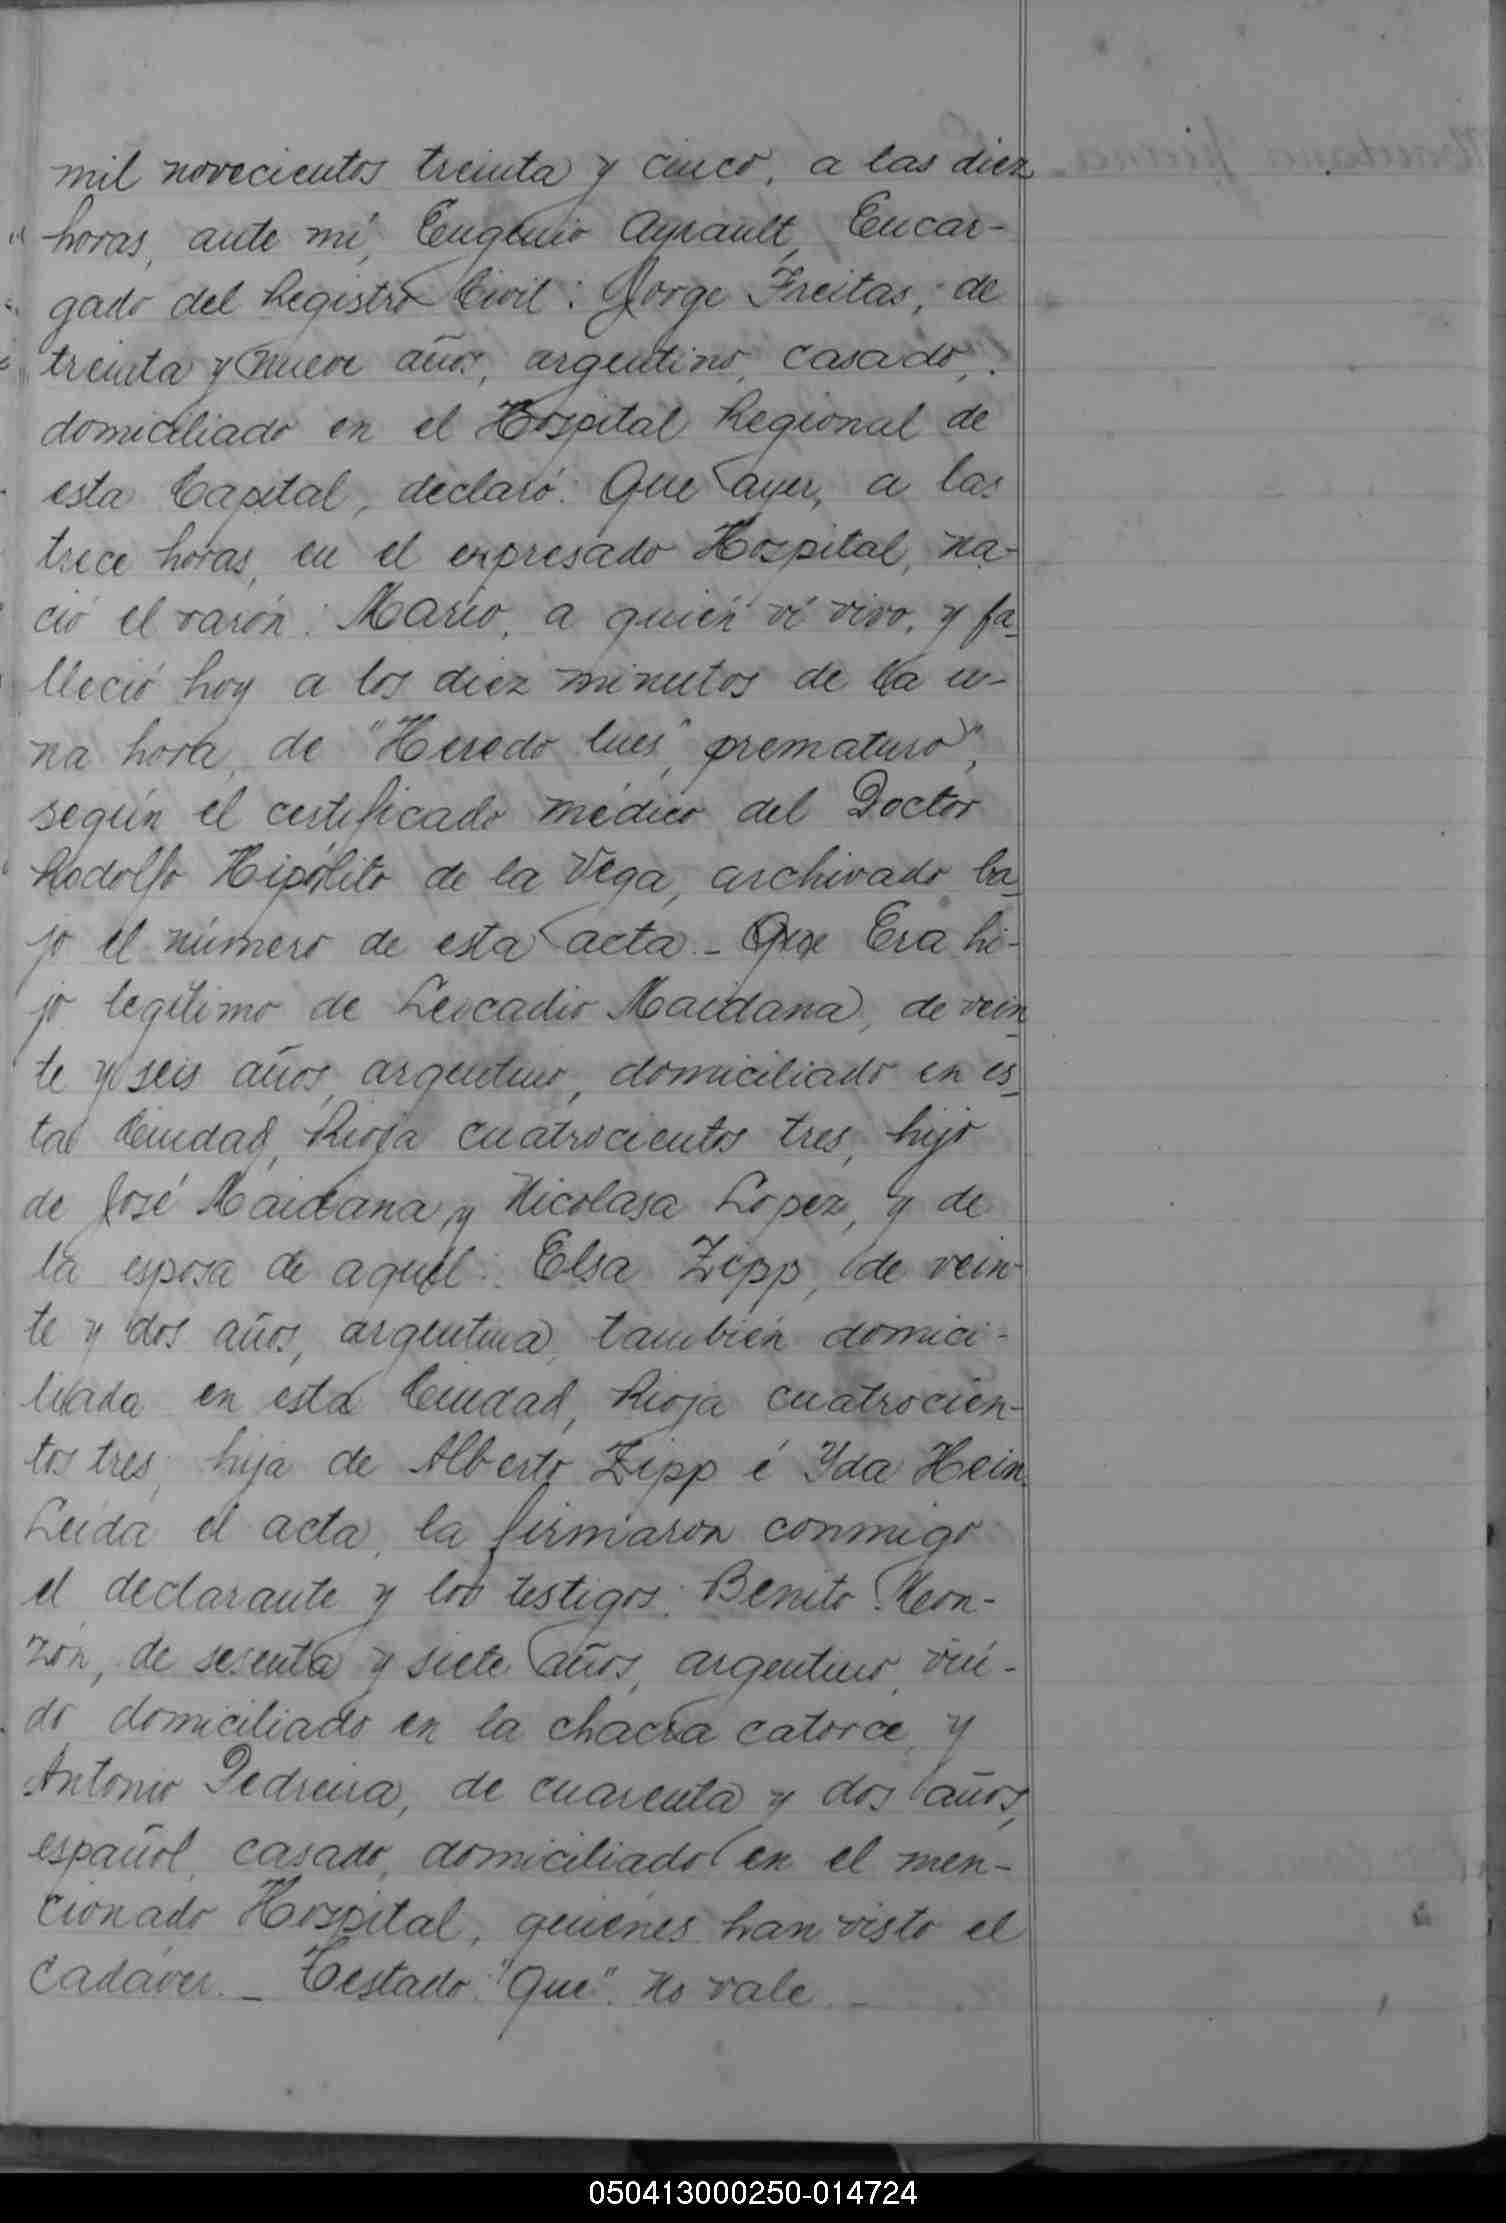 mil novecientos treinta y cinco, a las diez
horas, ante mí, Eugenio Ayrault, Encar-
gado del Registro Civil: Jorge Freitas, de
treinta y nueve años, argentino, casado,
domiciliado en el Hospital Regional de
esta Capital, declaró: Que ayer, a las
trece horas, en el expresado Hospital, na-
ció el varón: Mario, a quién ví vivo, y fa-
lleció hoy a los diez minutos de la u-
na hora, de "Heredo lues, prematuro",
según el certificado médico del Doctor
Rodolfo Hipólito de la Vega, archivado ba-
jo el número de esta acta.- Que Era hi-
jo legítimo de Leocadio Maidana, de vein
te y seis años, argentino, domiciliado en es-
ta Ciudad, Rioja cuatrocientos tres, hijo
de José Maidana y Nicolasa Lopez, y de
la esposa de aquél: Elsa Zipp, de vein-
te y dos años, argentina, también domici-
liada en esta Ciudad, Rioja cuatrocien-
tos tres, hija de Alberto Zipp é Yda Hein.
Leída el acta, la firmaron conmigo
el declarante y los testigos: Benito Mon-
zón, de sesenta y siete años, argentino, viú-
do domiciliado en la chacra catorce, y
Antonio Pedreira, de cuarenta y dos años,
español, casado, domiciliado en el men-
cionado Hospital, quiénes han visto el
cadáver._ Testado: "Que". No vale._
050413000250-014724